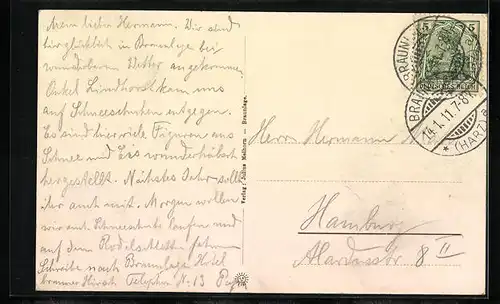 Mein lieber Hermann. Wir sind
hier glücklich in Braunlage bei
wunderbarem Wetter angekommen.
Onkel Lindhorst kam uns
auf Schneeschuhen entgegen.
Es sind hier viele Figuren aus
Schnee und Eis wunderhübsch
hergestellt. Nächstes Jahr sollt
ihr auch mit. Morgen wollen
wir mit Schneeschuhe laufen und
auf dem Rodelschlitten fahren
Schreibe nach Braunlage Hotel
brauner Hirsch Telephon N. 13
Verlag: Julius Meihorn - Braunlage.
5 5
DEUTSCHES REICH
BRAUNLAGE
14.1.11. 7-8
* (HARZ) a
Herrn Hermann
Hamburg
8 II